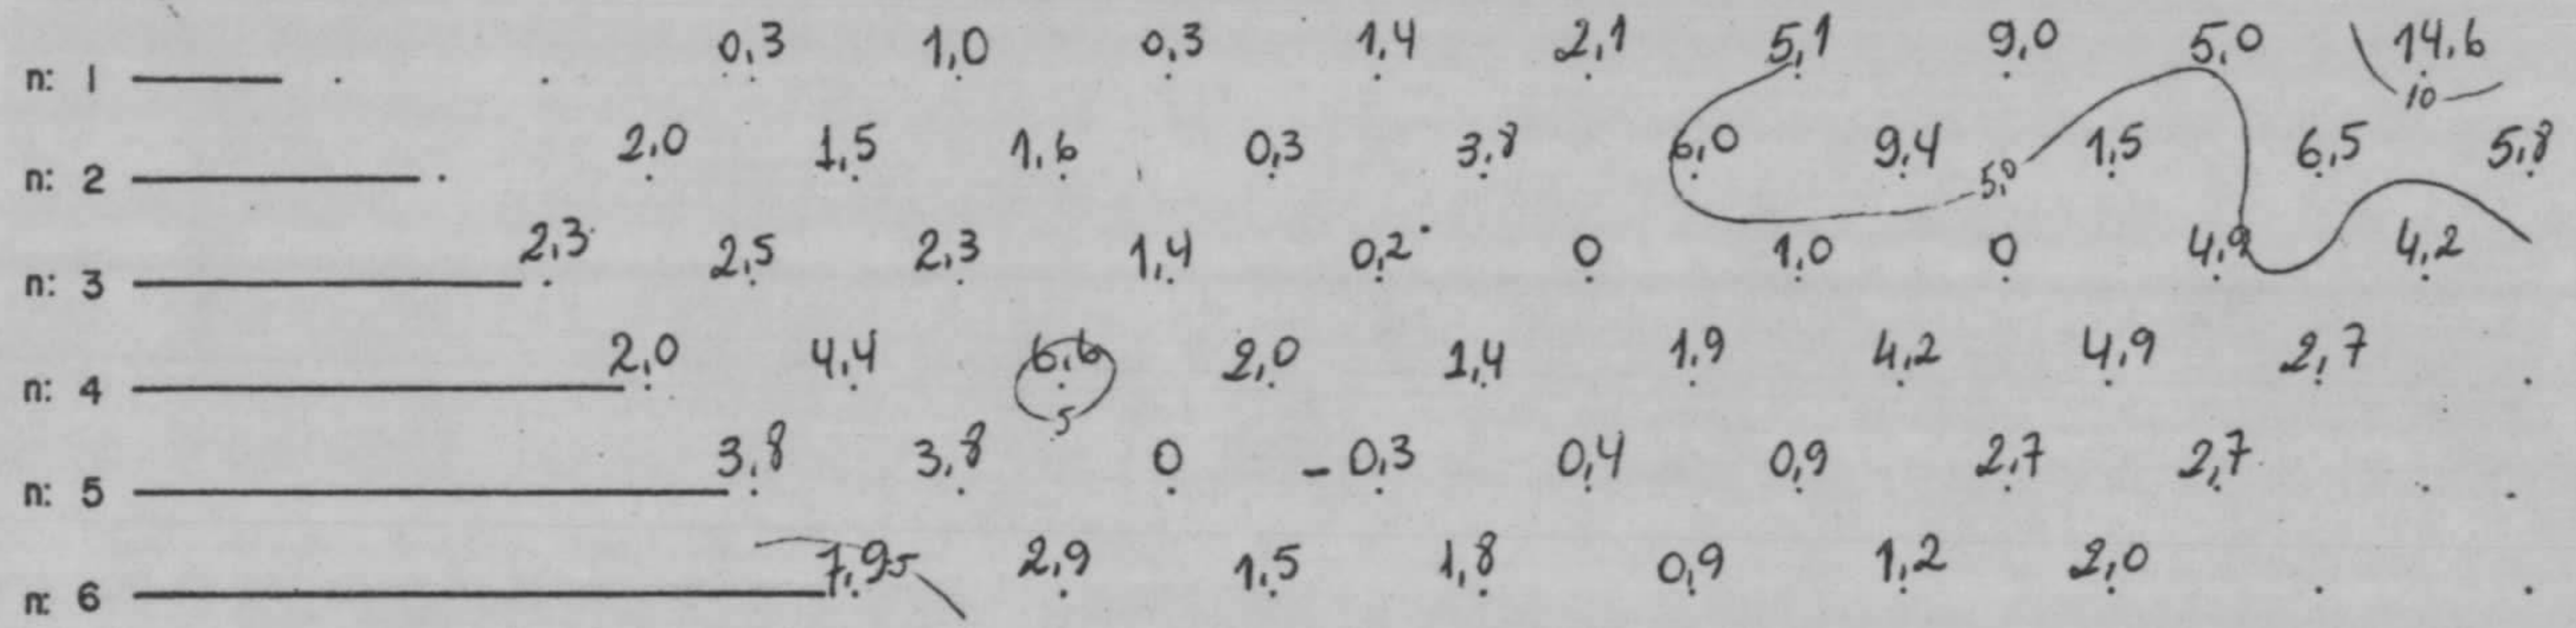 n: 1 0,3 1,0 0,3 1,4 2,1 5,1 9,0 5,0 14,6
10
n: 2 2,0 1,5 1,6 0,3 3,8 6,0 9,4 5,0 1,5 6,5 5,8
n: 3 2,3 2,5 2,3 1,4 0,2 0 1,0 0 4,9 4,2
n: 4 2,0 4,4 6,6 2,0 1,4 1,9 4,2 4,9 2,7
5
n: 5 3,8 3,8 0 -0,3 0,4 0,9 2,7 2,7
n: 6 7,9 5 2,9 1,5 1,8 0,9 1,2 2,0